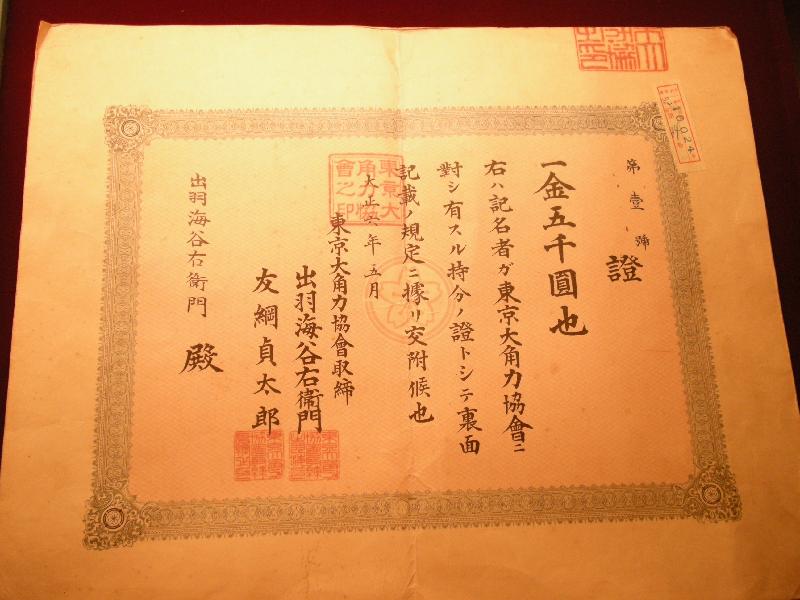 第壹號
證
一金五千圓也
右ハ記名者ガ東京大角力協會ニ
對シ有スル持分ノ證トシテ裏面
記載ノ規定ニ據リ交附候也
大正六年五月
東京大角力協會取締
出羽海谷右衞門
友綱貞太郎
出羽海谷右衞門
殿
東京大角力協會之印